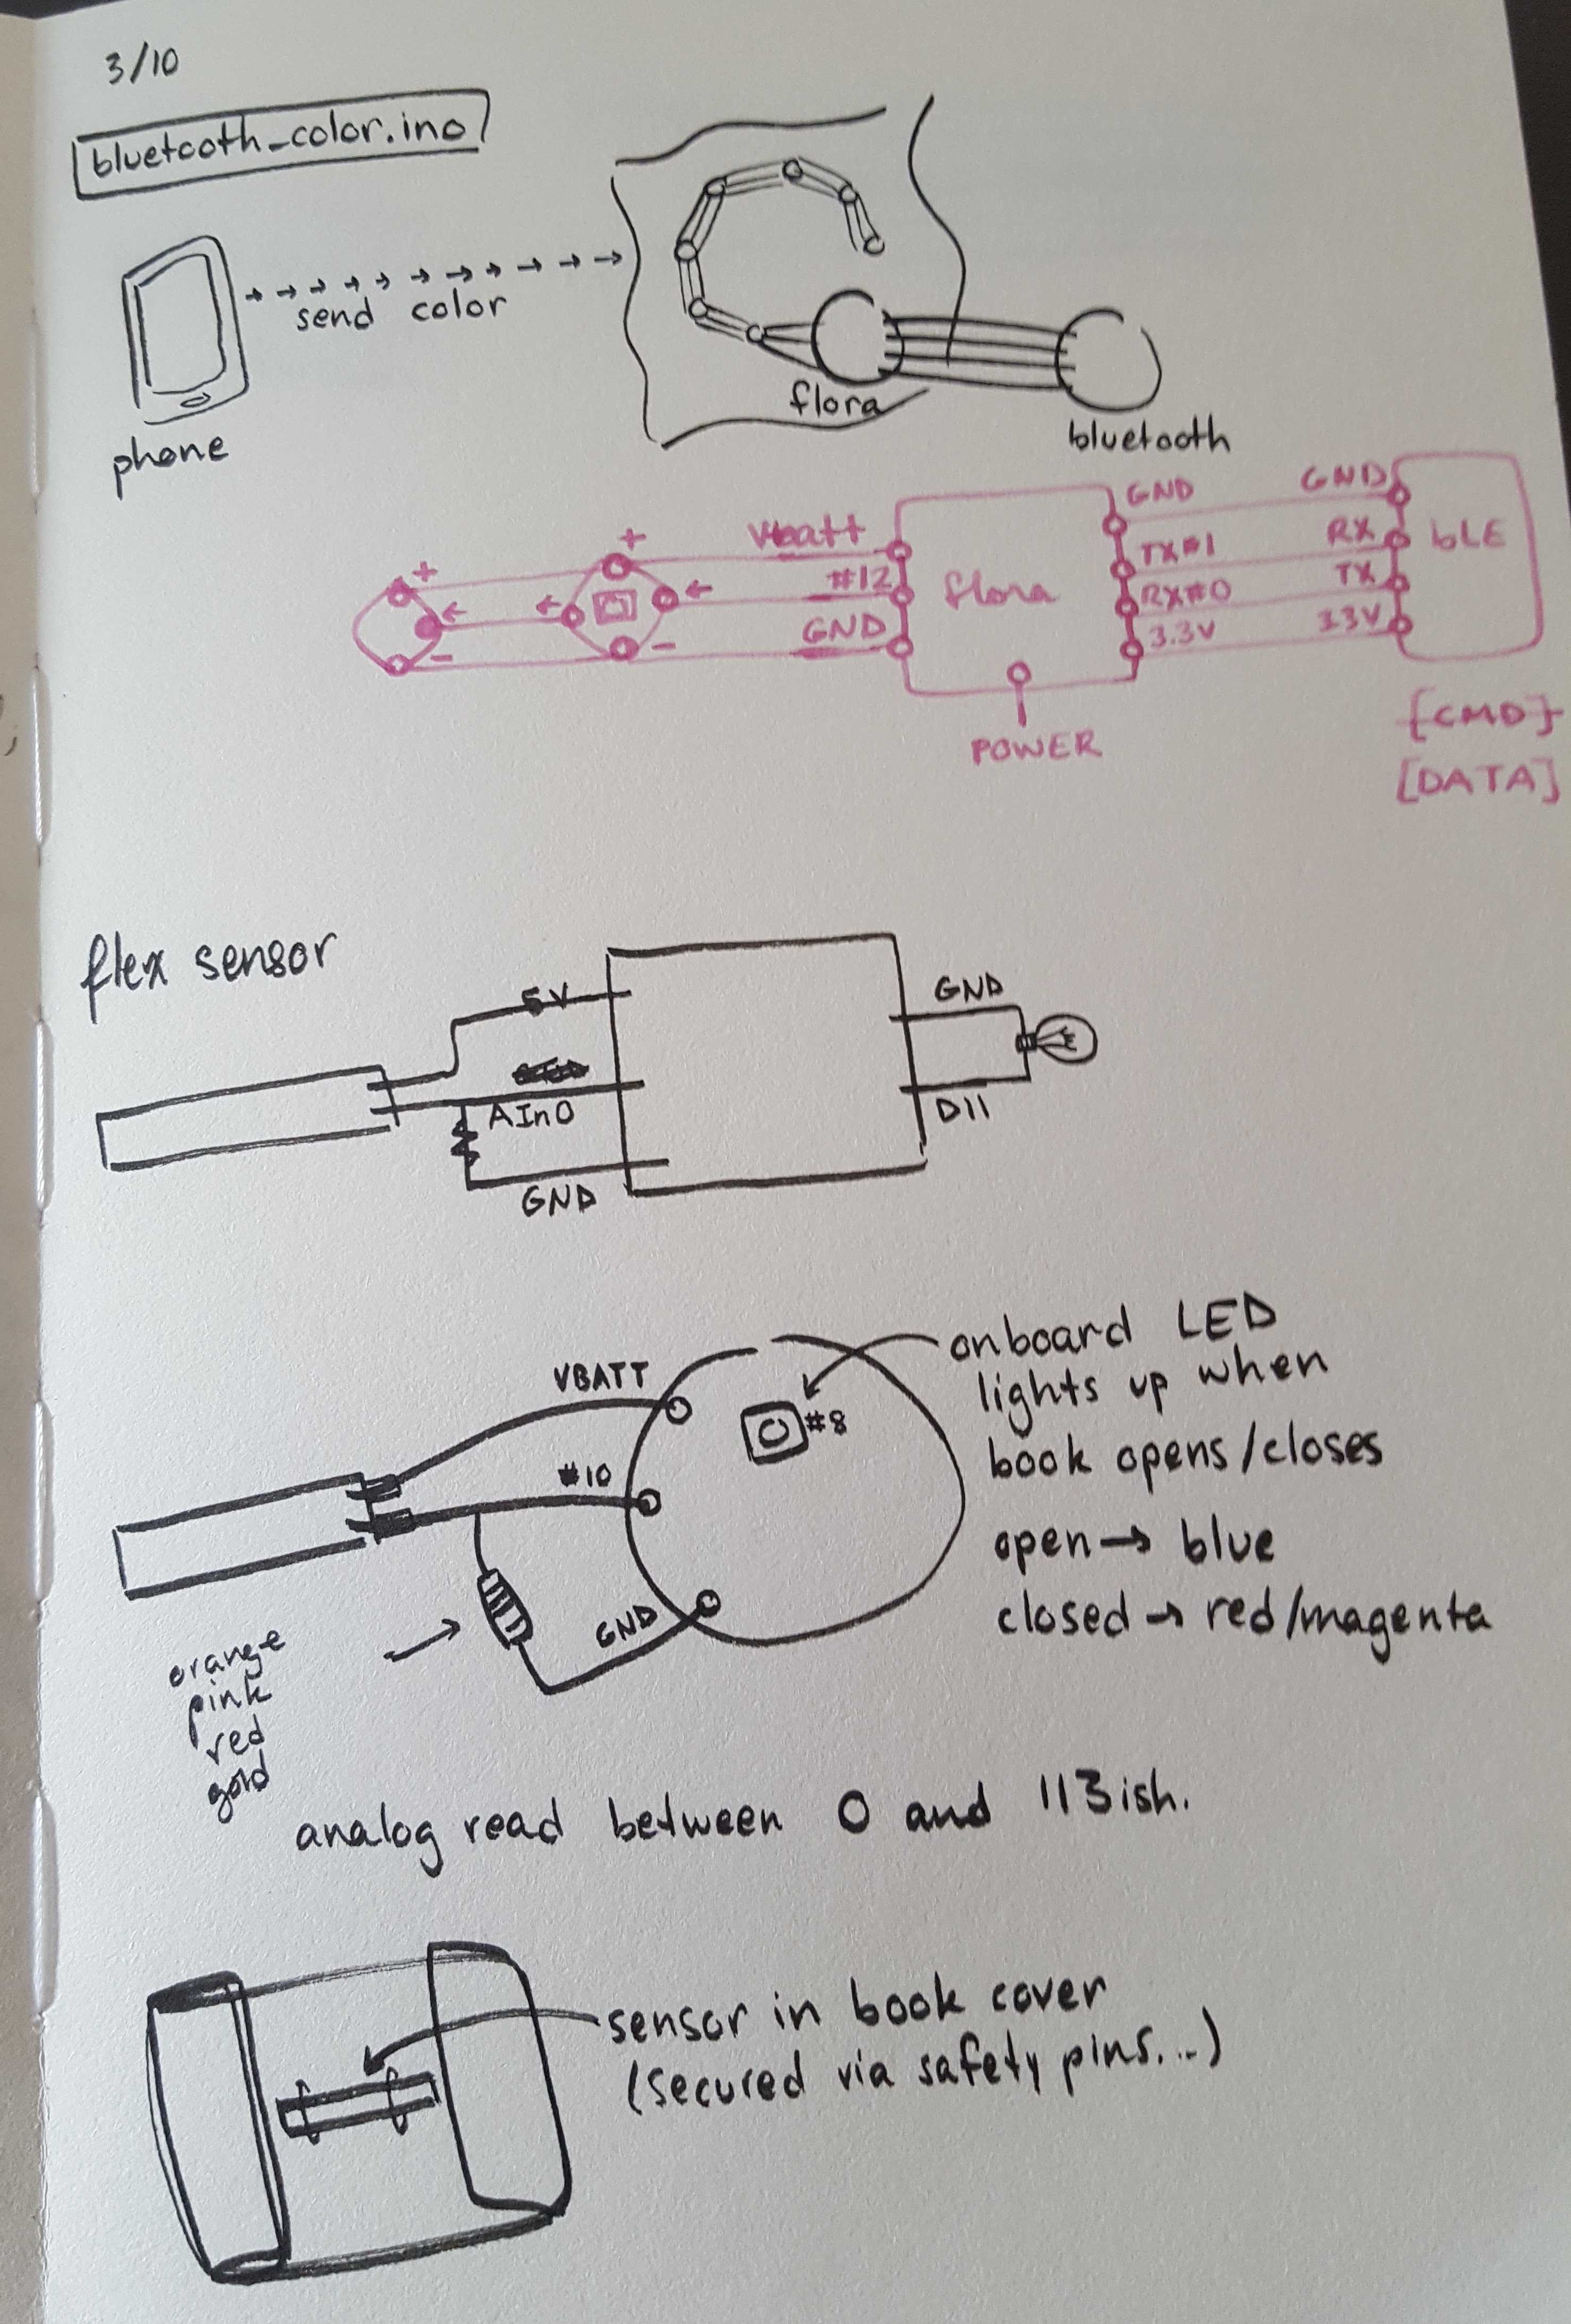 3/10
bluetooth_color.ino
send color
phone
flora
bluetooth
+
+
-
-
Vbatt
#12
GND
flora
POWER
GND
TX#1
RX#0
3.3V
GND
RX
TX
3.3V
bLE
[CMD]
[DATA]
flex sensor
5V
AIn0
GND
GND
D11
VBATT
#10
GND
#8
onboard LED
lights up when
book opens/closes
open → blue
closed → red/magenta
orange
pink
red
gold
analog read between 0 and 113ish.
sensor in book cover
(secured via safety pins...)